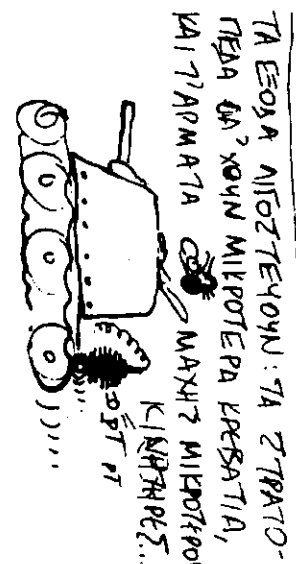 ΤΑ ΕΞΟΔΑ ΛΙΓΟΣΤΕΥΟΥΝ: ΤΑ ΣΤΡΑΤΟ-
ΠΕΔΑ ΘΑ 'ΧΟΥΝ ΜΙΚΡΟΤΕΡΑ ΚΡΕΒΑΤΙΑ,
ΚΑΙ Τ' ΑΡΜΑΤΑ ΜΑΧΗΣ ΜΙΚΡΟΤΕΡΟΥΣ
ΚΙΝΗΤΗΡΕΣ...
ΡΤ ΡΤ